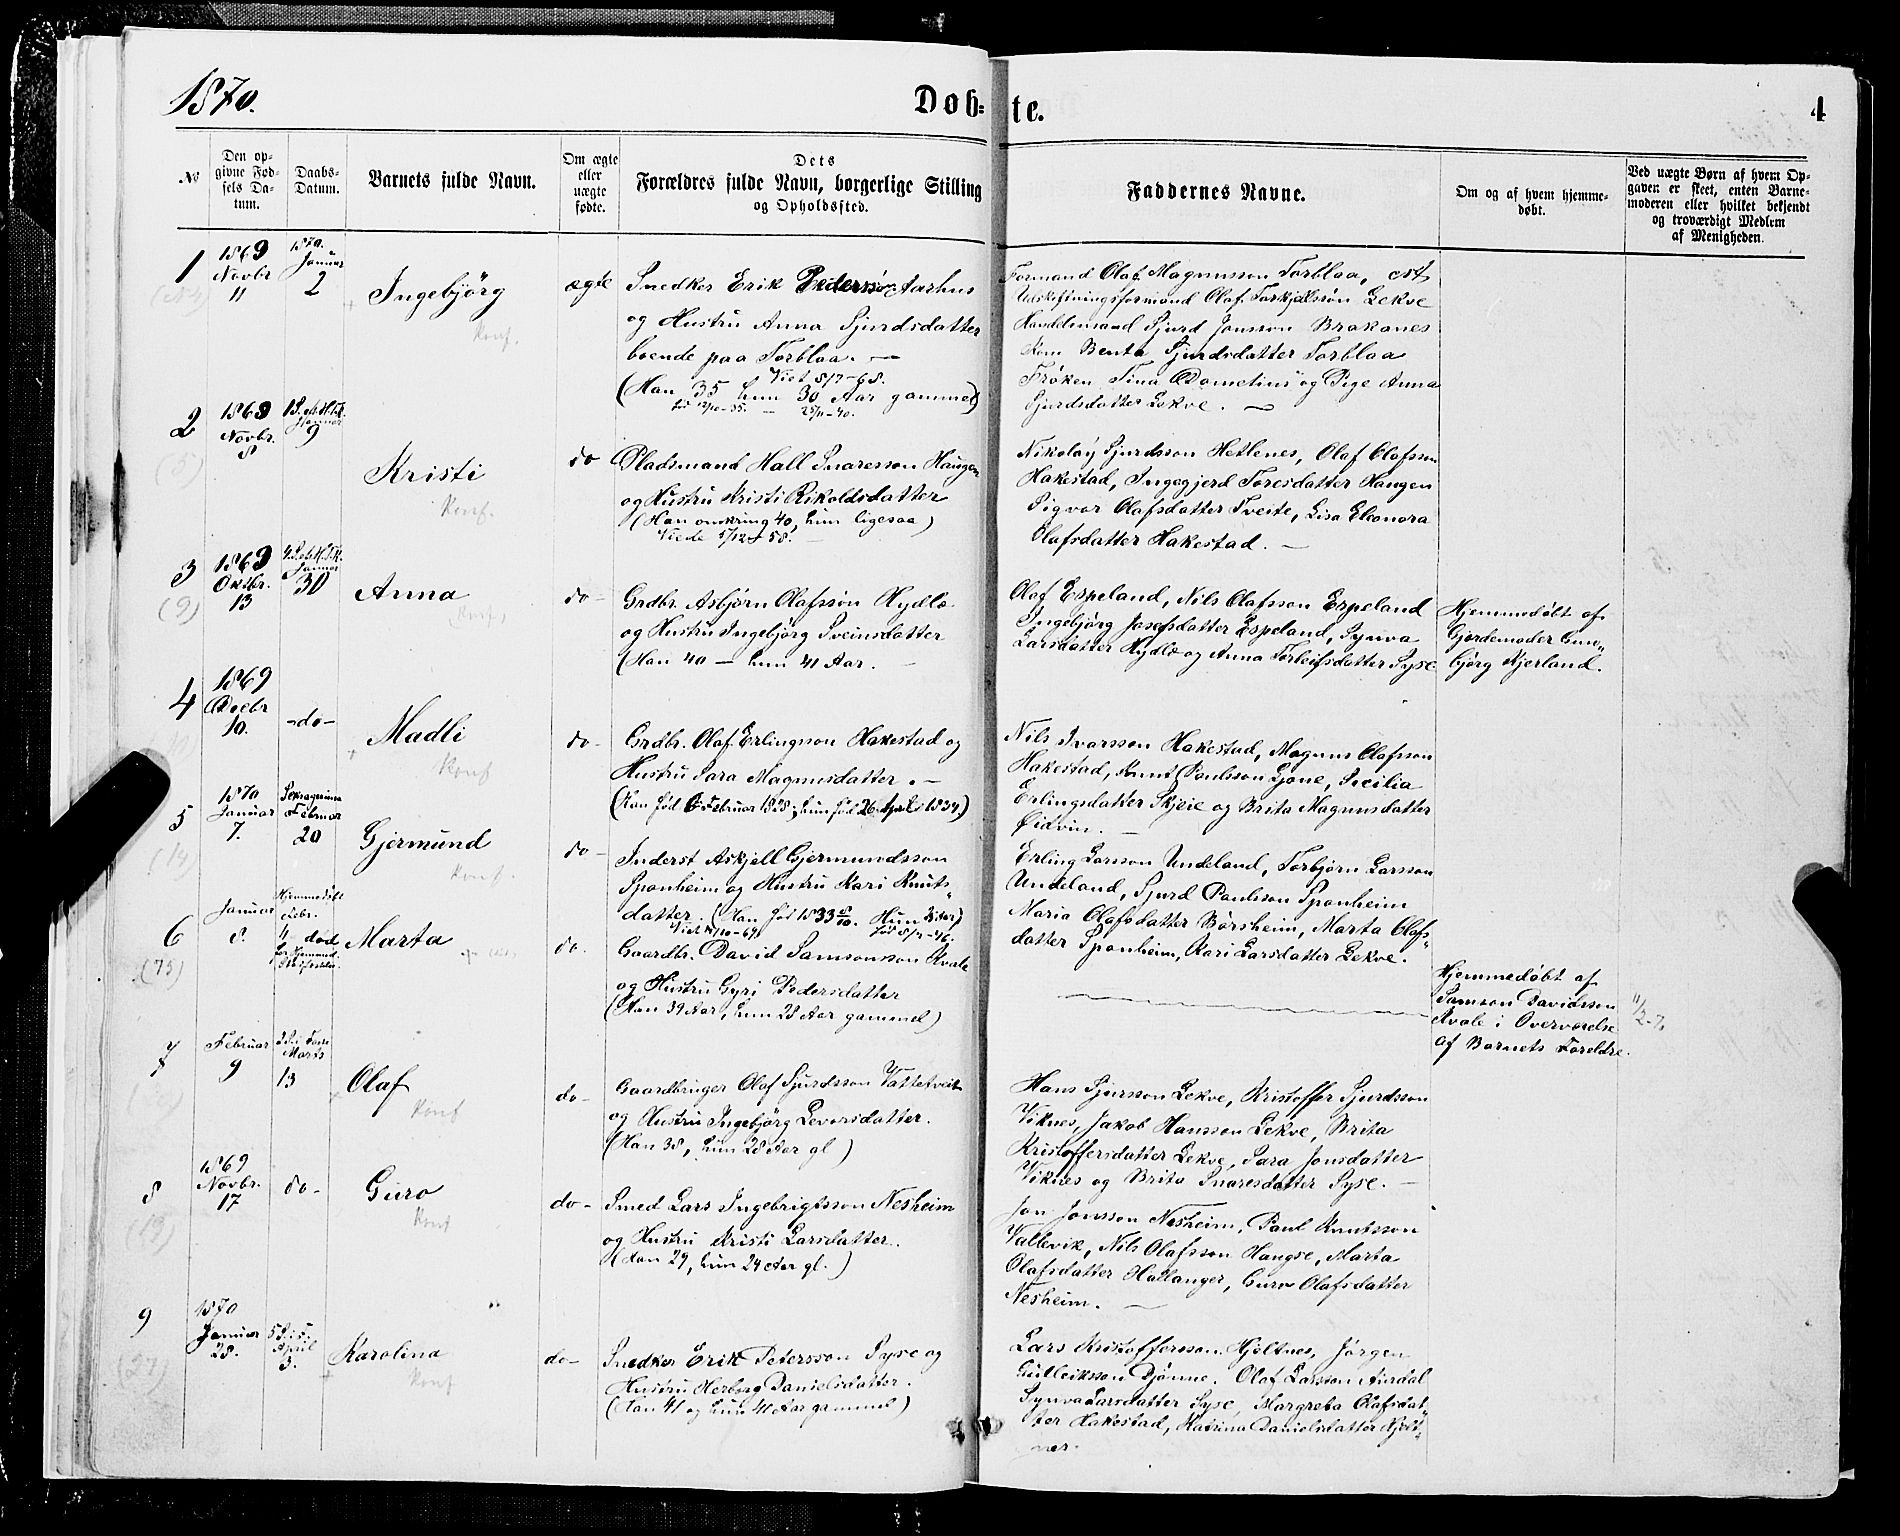 1870.
Døb-
te.
4
№
Den op-
givne Fød-
sels Da-
tum.
Daabs-
Datum.
Barnets fulde Navn.
Om ægte
eller
uægte
fødte.
Dets
Forældres fulde Navn, borgerlige Stilling
og Opholdssted.
Faddernes Navne.
Om og af hvem hjemme-
døbt.
Ved uægte Børn af hvem Op-
gaven er skeet, enten Barne-
moderen eller hvilket bekjendt
og troværdigt Medlem
af Menigheden.
1
1869
Novbr
11
1870.
Januar
2
Ingebjörg
Konf.
ægte
Snedker Erik Pederss. Aarhus
og Hustru Anna Sjurdsdatter
boende paa Torblaa. —
Viet 5/7-68.
(Han 35 hun 30 Aar gammel)
Formand Olaf Magnusson Torblaa,
Udskiftningsformand Olaf Torkjellssøn Lekve
Handelsmand Sjurd Jonsson Brakanes
Kone Benta Sjurdsdatter Torblaa
Frøken Tina Dometius og Pige Anna
Sjurdsdatter Lekve. —
2
(5)
1869
Novbr.
8
Januar
9
Kristi
Konf.
do
Pladsmand Hall Snaresson Haugen
og Hustru Kristi Rikoldsdatter
(Han omkring 40, hun ligesaa)
Viede 5/12 58.
Nikolaÿ Sjurdsson Hetlenes, Olaf Olafsson
Hakestad, Ingegjerd Toresdatter Haugen
Sigvor Olafsdatter Tveite, Lisa Eleonora
Olafsdatter Hakestad. —
3
(9)
1869
Oktbr.
13
Januar
30
Anna
Konf.
do-
Grdbr. Asbjørn Olafssøn Hydle
og Hustru Ingebjörg Sveinsdatter
(Han 40 — hun 41 Aar. —
Olaf Espeland, Nils Olafsson Espeland
Ingebjörg Josefsdatter Espeland, Synva
Larsdatter Hydle og Anna Torleifsdatter Syse
Hjemmedøbt af
Gjordemoder Gun-
björg Kjerland.
4
1869
Decbr
10.
-do-
Madli
Konf
do-
Grdbr. Olaf Erlingsson Hakestad og
Hustru Sara Magnusdatter. —
(Han född Februar 1828; hun fød 26 April 1834.)
Nils Ivarsson Hakestad, Magnus Olafsson
Hakestad, Knut Paulsson Djøne, Sicilia
Erlingsdatter Skjeie og Brita Magnusdatter
Øidvin. —
5
(14)
1870
Januar
7.
Februar
20
Gjermund
Konf.
do-
Inderst Askjell Gjermundsson
Sponheim og Hustru Kari Knuts-
datter. (Han fød 1833 Hun
Erling Larsson Undeland, Torbjörn Larsson
Undeland, Sjurd Paulsson Sponheim
Maria Olafsdatter Børsheim, Marta Olafs-
datter Sponheim, Kari Larsdatter Lekve.
6
(75)
Januar
8.
Hjemmedøbt
Febr.
død
Marta
do.
Gaardbr. David Samsonsson Kvale
og Hustru Gyri Pedersdatter
(Han 39 Aar, hun 28 Aar gammel)
Hjemmedøbt af
Samson Davidsson
Kvale i Overværelse
af Barnets Foreldre.
7
Februar
9
Marts
13
Olaf
Konf
do-
Gaardbruger Olaf Sjurdsson Vattetveit
og Hustru Ingebjörg Levorsdatter.
(Han 38, hun 28 Aar gl)
Hans Sjursson Lekve, Kristoffer Sjurdsson
Viknes, Jakob Hansson Lekve, Brita
Kristoffersdatter Lekve, Sara Jonsdatter
Viknes og Brita Snaresdatter Syse. —
8
(19)
1869
Novbr.
17
do-
Guro
Konf
do-
Smed Lars Ingebrigtsson Nesheim
og Hustru Kristi Larsdatter.
(Han 29, hun 24 Aar gl.)
Jon Jonsson Nesheim, Paul Knutsson
Vallevik, Nils Olafsson Haugse, Marta
Olafsdatter Hallanger, Guro Olafsdatter
Nesheim. —
9
(27)
1870
Januar
28.
April
3.
Karolina
Konf
do-
Snedker Erik Petersson Syse og
Hustru Herborg Danielsdatter.
(Han 41 og hun 41 Aar gammel)
Lars Kristoffersson Hjeltnes, Jörgen
Gulleiksson Djönne. Olaf Larsson Aurdal
Synva Larsdatter Syse, Margreta Olafsdat-
ter Hakestad, Katrina Danielsdatter Hjelt-
nes.